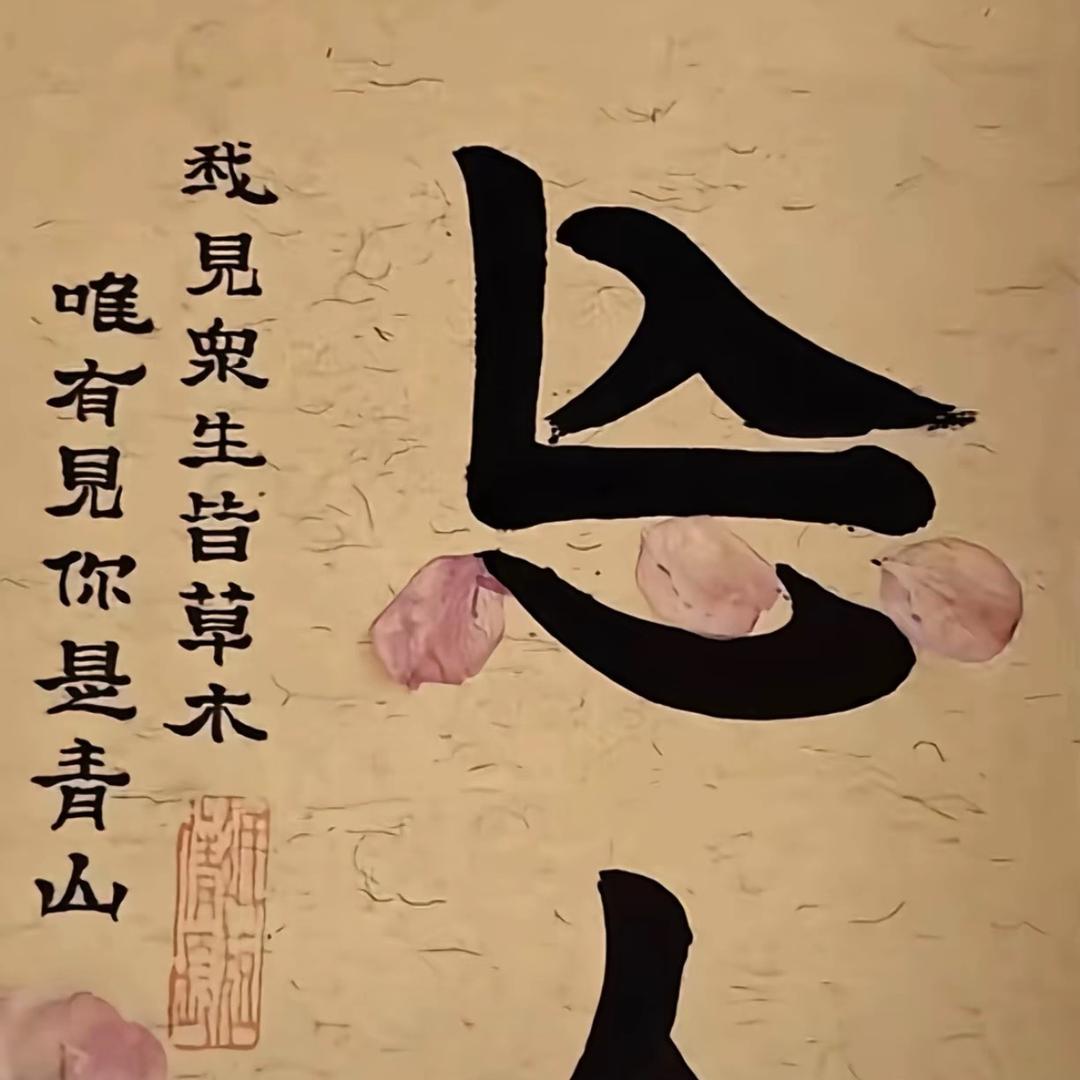 忘
我見眾生皆草木
唯有見你是青山